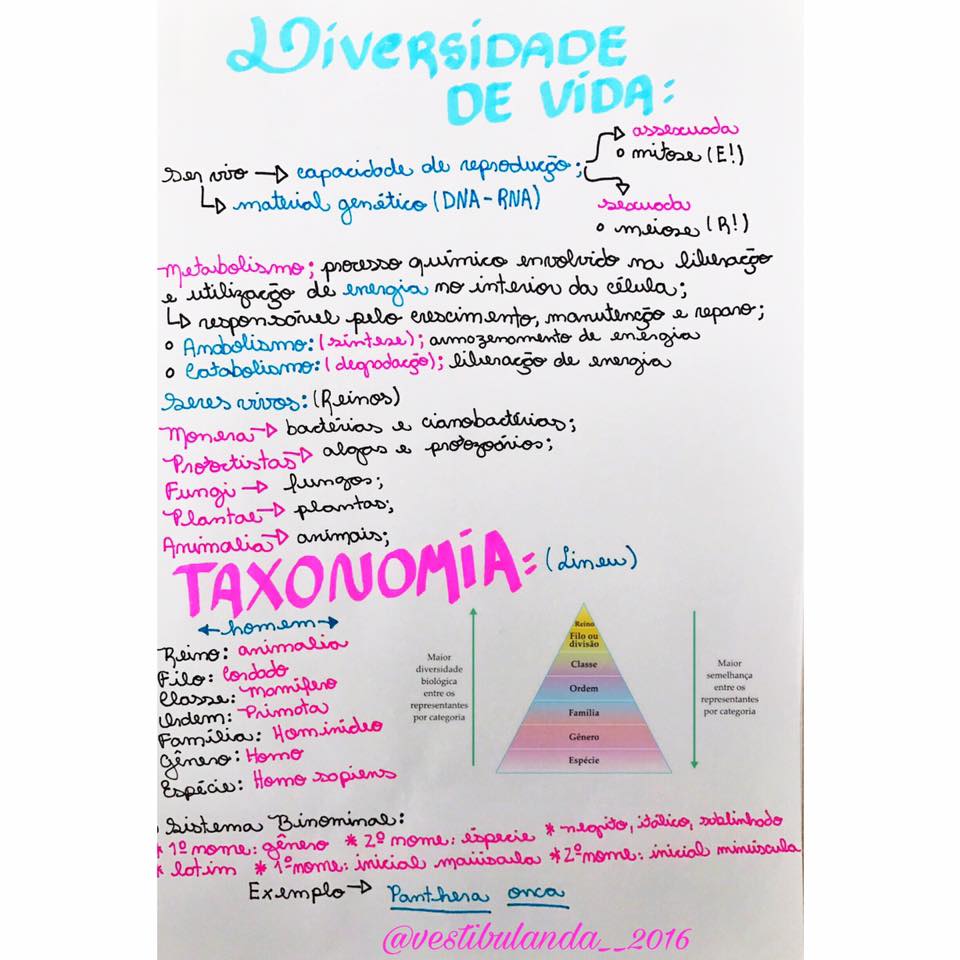 Diversidade
de vida:
assexuada
mitose (E!)
Ser vivo → capacidade de reprodução;
material genético (DNA-RNA)
sexuada
meiose (R!)
Metabolismo; processo químico envolvido na liberação
e utilização de energia no interior da célula;
responsável pelo crescimento, manutenção e reparo;
Anabolismo: (síntese); armazenamento de energia
Catabolismo: (degradação); liberação de energia
Seres vivos: (Reinos)
Monera → bactérias e cianobactérias;
Protoctistas → algas e protozoários;
Fungi → fungos;
Plantae → plantas;
Animalia → animais;
TAXONOMIA: (Lineu)
homem
Reino: animalia
Filo: Cordado
Classe: Mamífero
Ordem: Primata
Família: Hominídeo
Gênero: Homo
Espécie: Homo sapiens
Maior
diversidade
biológica
entre os
representantes
por categoria
Reino
Filo ou
divisão
Classe
Ordem
Família
Gênero
Espécie
Maior
semelhança
entre os
representantes
por categoria
Sistema Binominal:
* 1º nome: gênero * 2º nome: espécie * negrito, itálico, sublinhado
* latim * 1º nome: inicial maiúscula * 2º nome: inicial minúscula
Exemplo → Panthera onca
@vestibulanda__2016